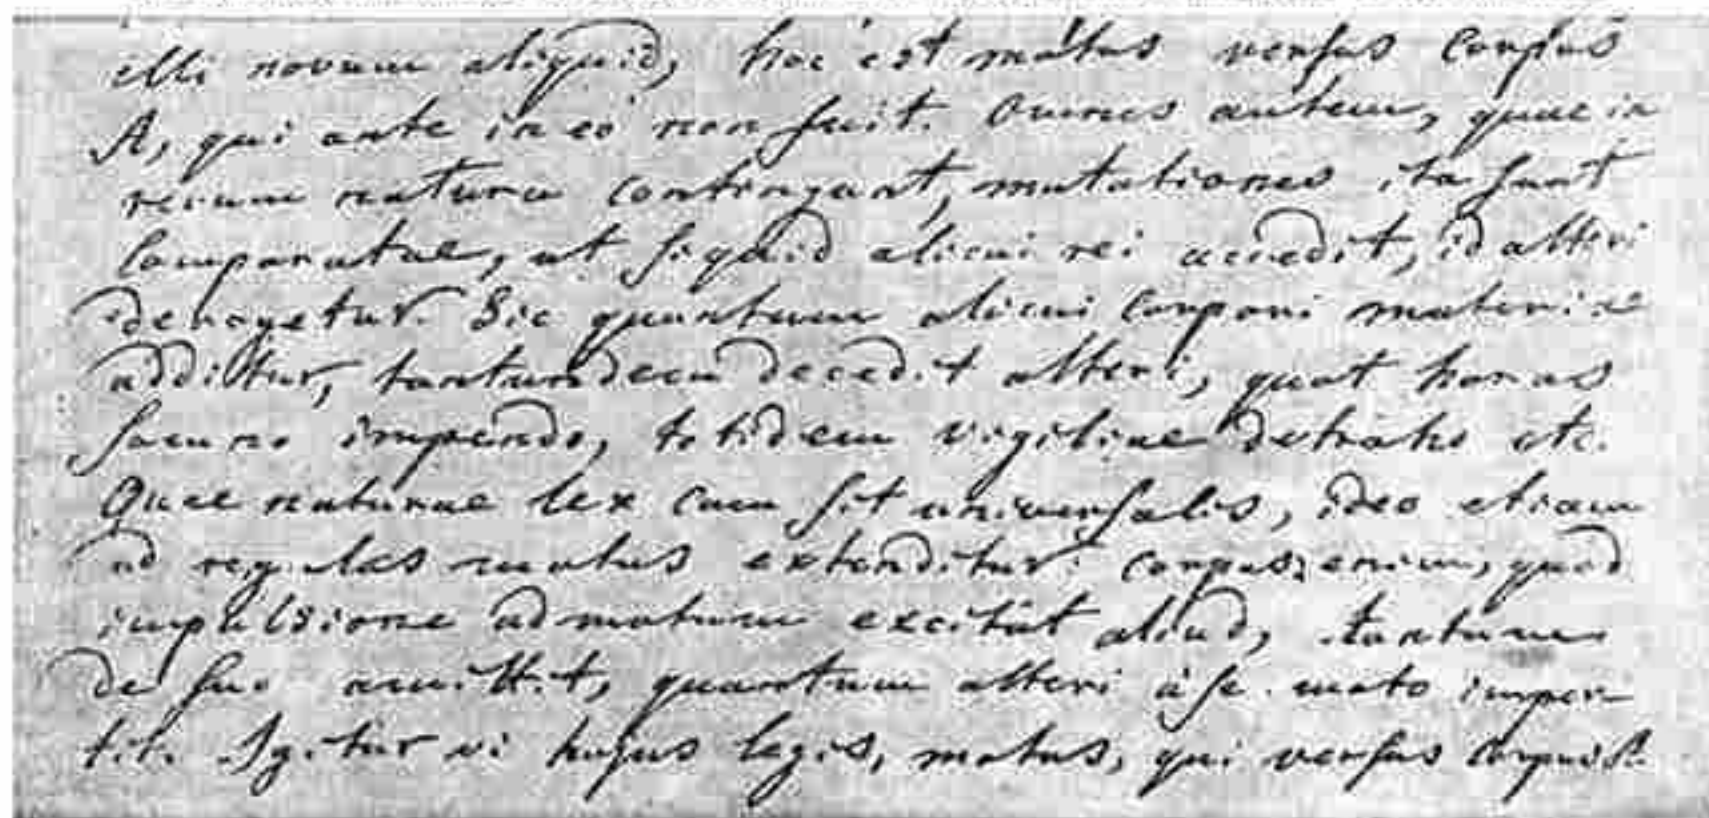 illi novum aliquid, hoc est motus versus corpus
A, qui ante in eo non fuit. Omnes autem, quae in
rerum natura contingunt, mutationes ita sunt
comparatae, ut si quid alicui rei accedit, id alteri
derogetur. Sic quantum alicui corpori materiae
additur, tantundem decedit alteri, quot horas
somno impendo, totidem vigiliae detraho etc.
Quae naturae lex cum sit universalis, ideo etiam
ad regulas motus extenditur: corpus enim, quod
impulsione ad motum excitat aliud, tantum
de suo amittit, quantum alteri à se moto imper-
tit. Igitur vi hujus legis, motus, qui versus corpus